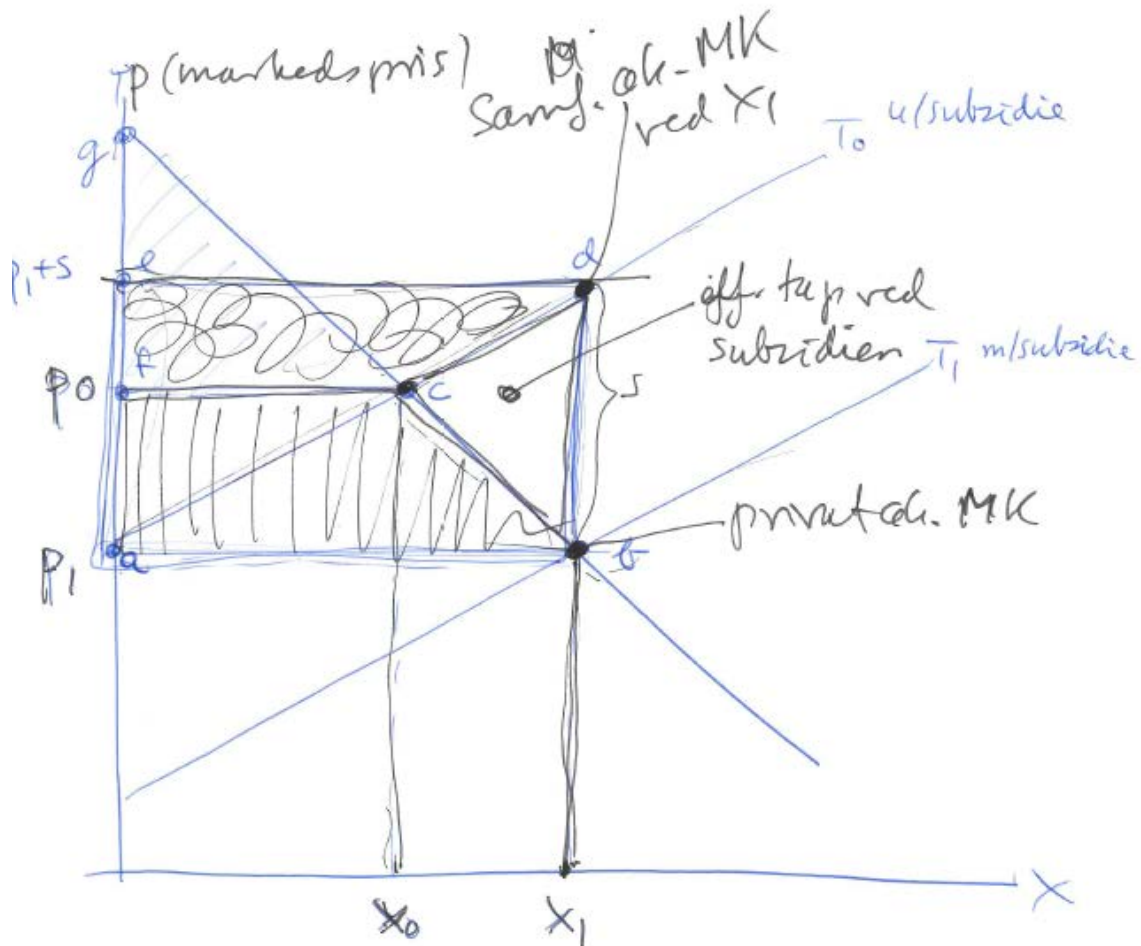 p (markedspris)
samf. øk. MK
ved X1
T0 u/subsidie
g
p1+s
e
d
eff. tap ved
subsidien
T1 m/subsidie
f
p0
c
s
privatøk. MK
p1
a
b
X
X0
X1